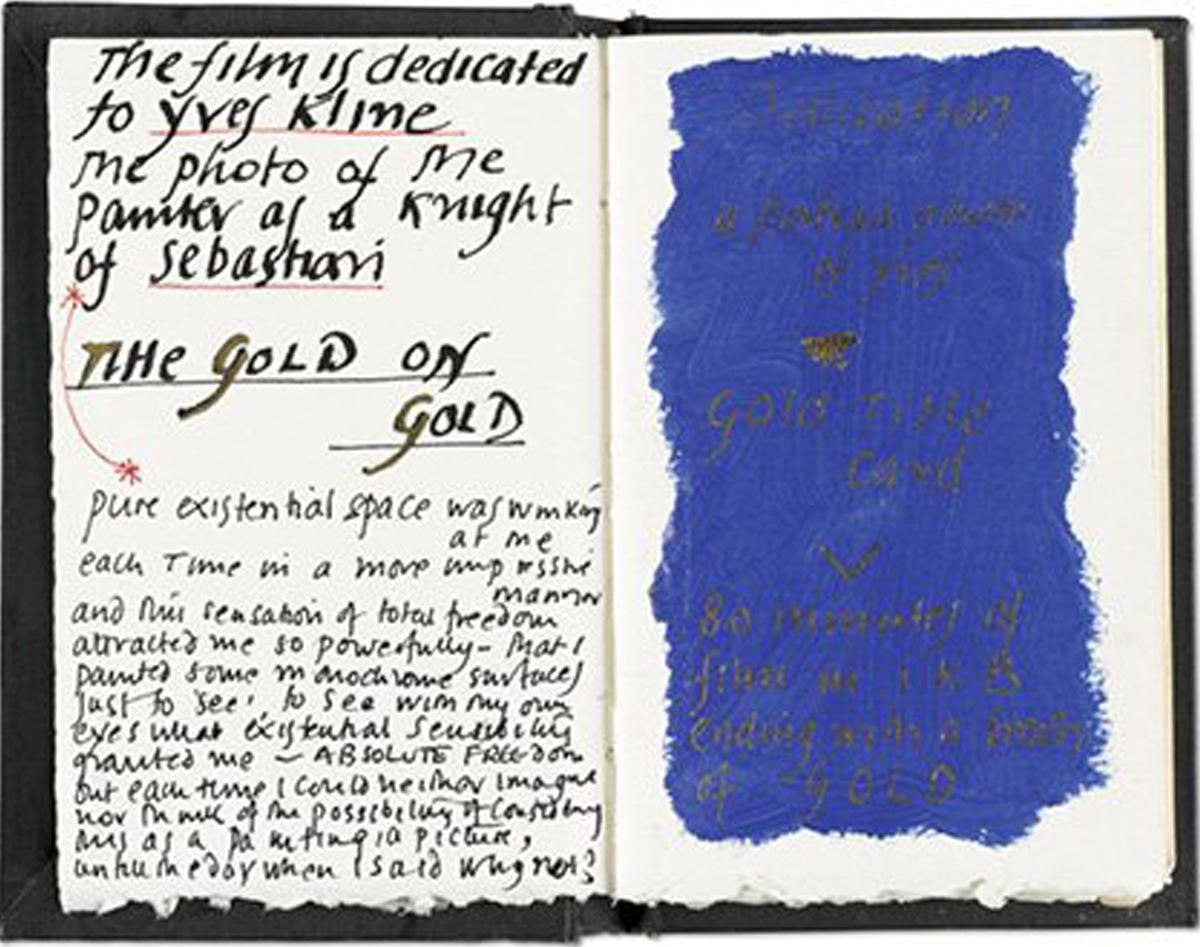 The film is dedicated
to yves Kline
The photo of the
painter as a Knight
of Sebastian
THE GOLD ON
GOLD
pure existential space was winking
at me
each Time in a more impressive
manner
and this sensation of total freedom
attracted me so powerfully - that I
painted some monochrome surfaces
Just to 'see', to see with my own
eyes what existential sensibility
granted me - ABSOLUTE FREEDOM
but each time I could neither imagine
nor think of the possibility of considering
this as a painting, a picture,
until the day when I said why not?
Dedication
a
of yves
GOLD Title
Card
80 minutes of
film in I.K.B
ending with a
of GOLD